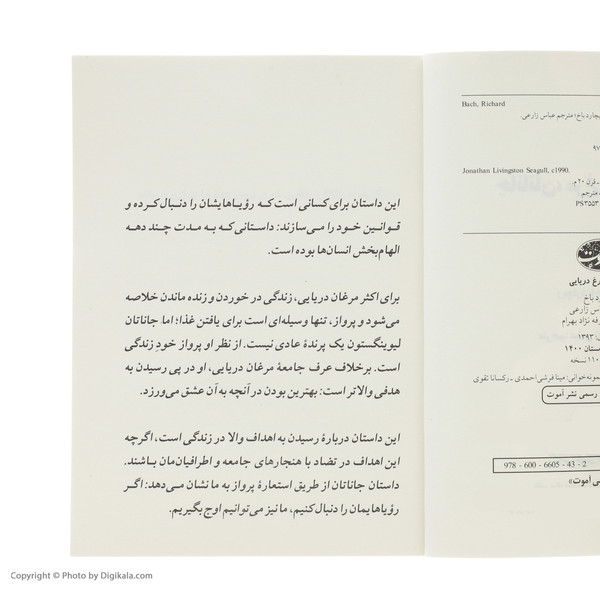 این داستان برای کسانی است که رؤیاهایشان را دنبال کرده و
قوانین خود را می‌سازند: داستانی که به مدت چند دهه
الهام‌بخش انسان‌ها بوده است.
برای اکثر مرغان دریایی، زندگی در خوردن و زنده ماندن خلاصه
می‌شود و پرواز، تنها وسیله‌ای است برای یافتن غذا؛ اما جاناتان
لیوینگستون یک پرندهٔ عادی نیست. از نظر او پرواز خودِ زندگی
است. برخلاف عرف جامعهٔ مرغان دریایی، او در پی رسیدن به
هدفی والاتر است: بهترین بودن در آنچه به آن عشق می‌ورزد.
این داستان دربارهٔ رسیدن به اهداف والا در زندگی است، اگرچه
این اهداف در تضاد با هنجارهای جامعه و اطرافیان‌مان باشند.
داستان جاناتان از طریق استعارهٔ پرواز به ما نشان می‌دهد: اگر
رؤیاهایمان را دنبال کنیم، ما نیز می‌توانیم اوج بگیریم.
Bach, Richard
باخ؛ مترجم عباس زارعی.
۹۷
Jonathan Livingston Seagull, c1990.
قرن ۲۰ م.
مترجم
PS۳۵۵۳
غ دریایی
د باخ
س زارعی
فه نژاد بهرام
۱۳۹۳
ستان ۱۴۰۰
۱۱۰ نسخه
نمونه‌خوانی: مینا فرشی احمدی ـ رکسانا تقوی
رسمی نشر آموت
978 - 600 - 6605 - 43 - 2
ی آموت»
Copyright © Photo by Digikala.com